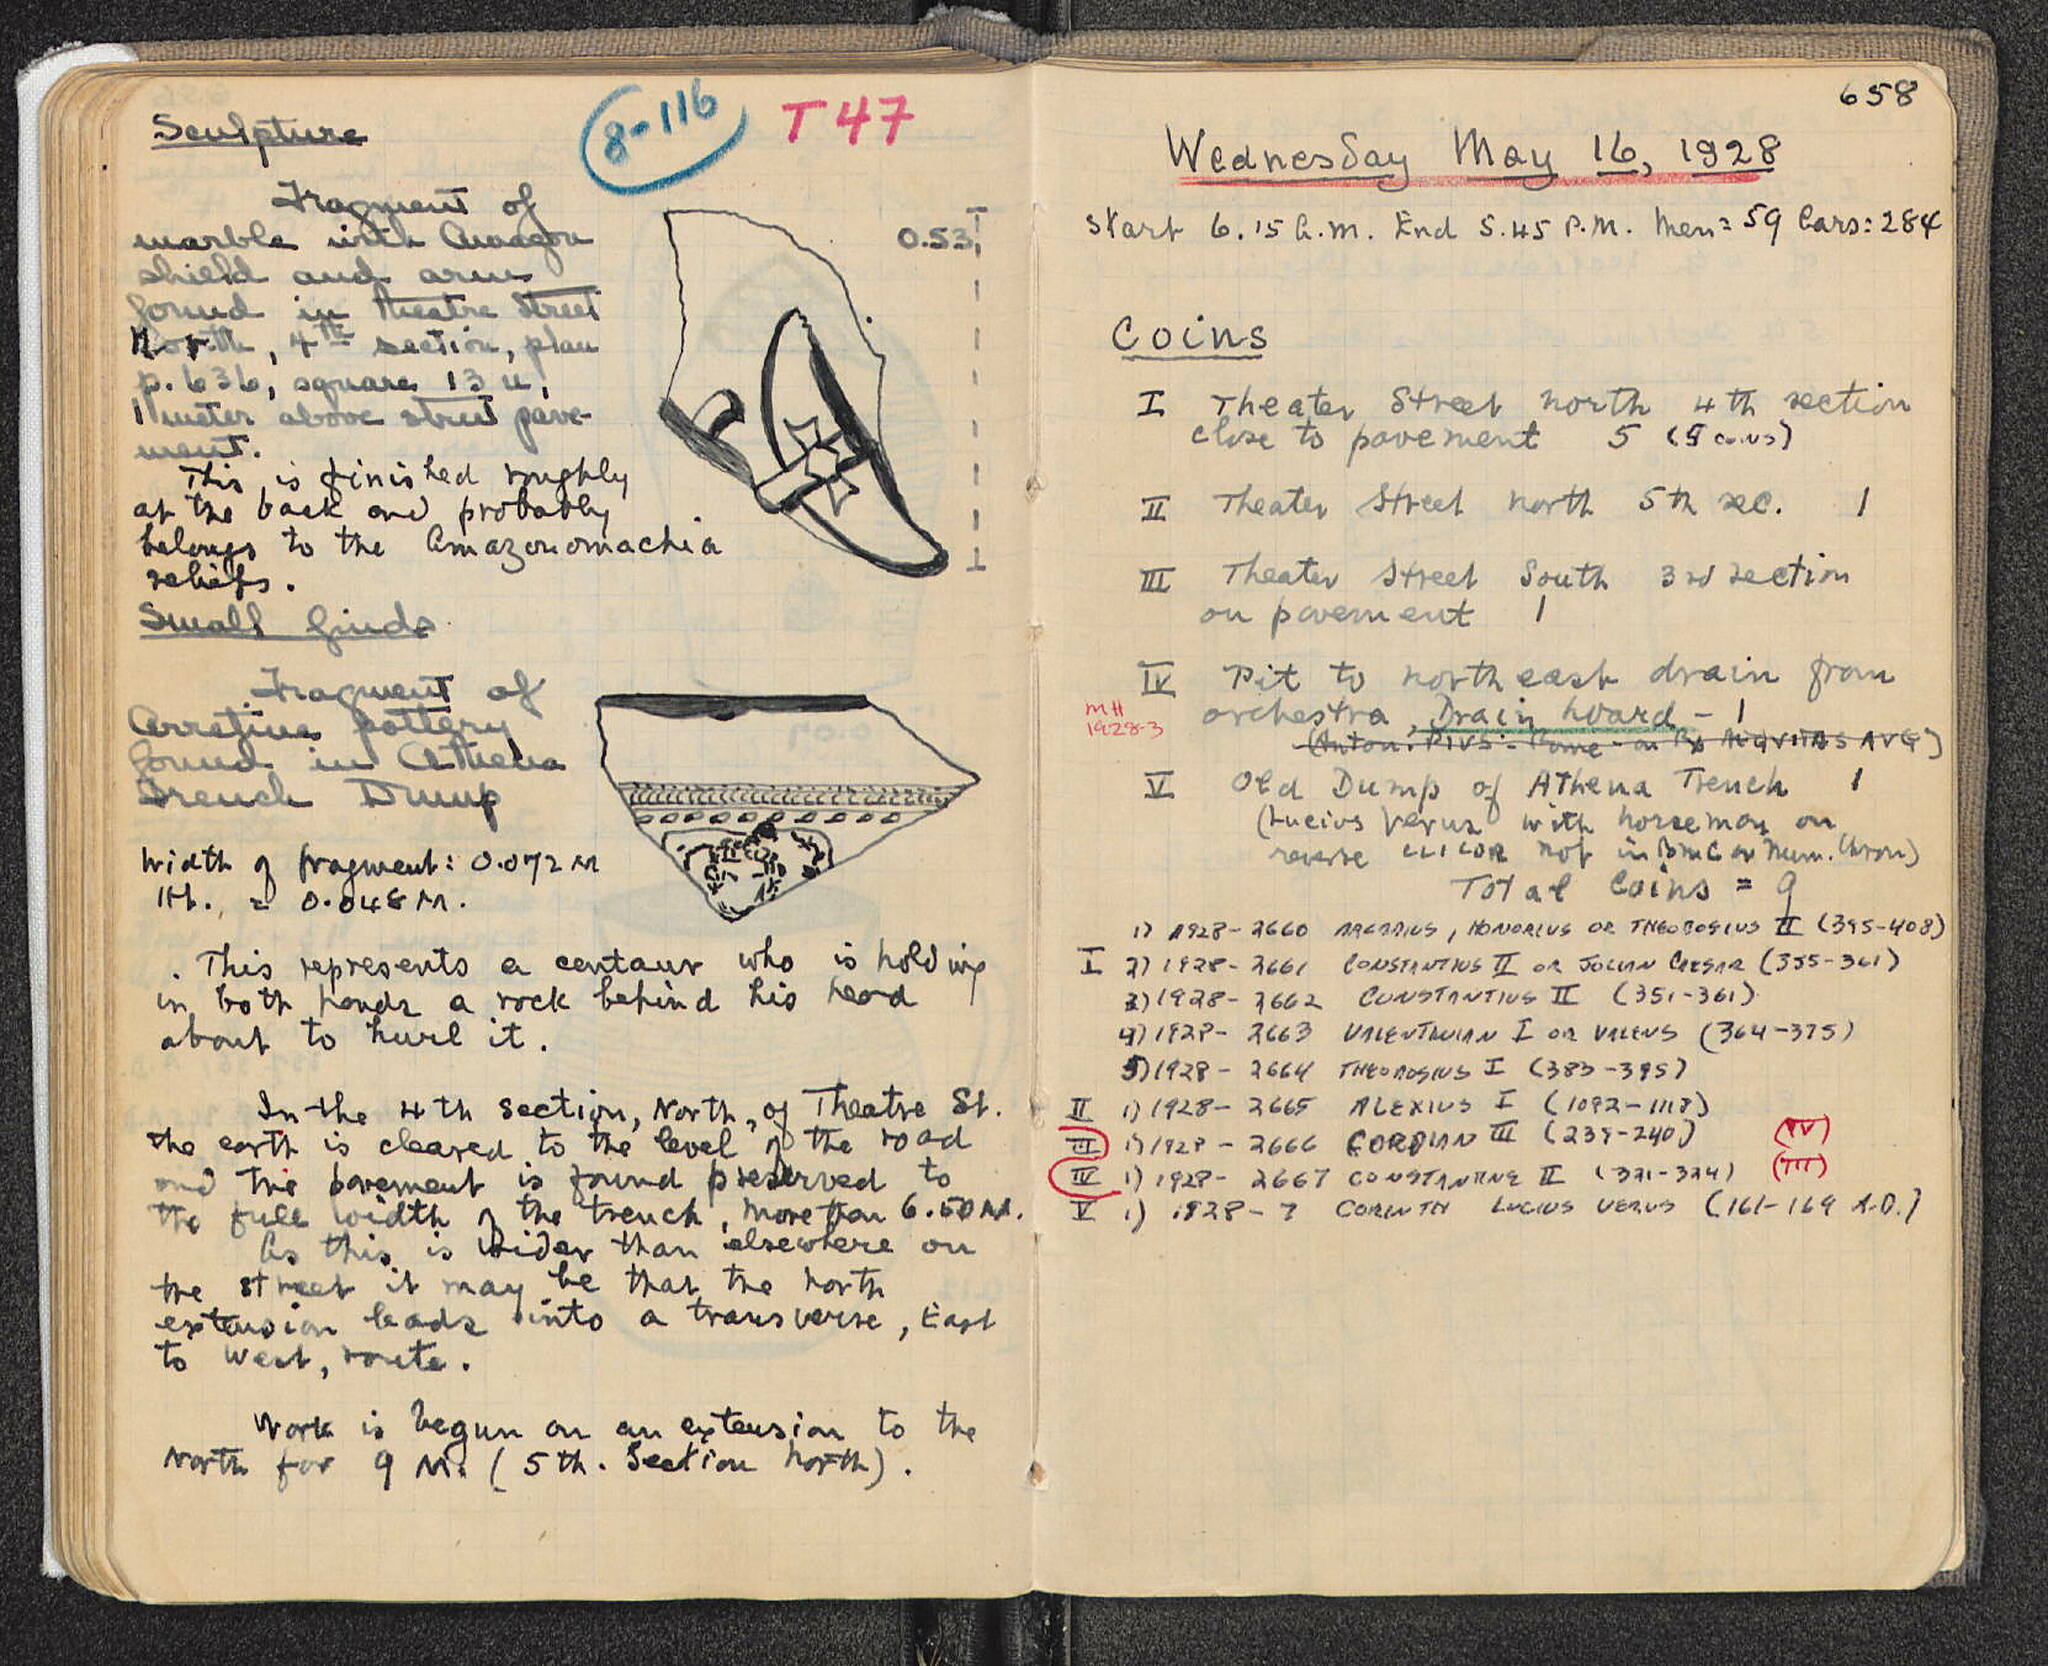 Sculpture
8-116
T 47
Fragment of
marble with Amazon
shield and arm
found in Theatre Street
North, 4th section, plan
p. 636, square 13 u,
1 meter above street pave-
ment.
0.53
This is finished roughly
at the back and probably
belongs to the Amazonomachia
reliefs.
Small finds
Fragment of
Arretine pottery
found in Athena
Trench Dump
Width of fragment: 0.072 M
Ht. = 0.048 M.
This represents a centaur who is holding
in both hands a rock behind his head
about to hurl it.
In the 4th section, North, of Theatre St.
the earth is cleared to the level of the road
and the pavement is found preserved to
the full width of the trench, more than 6.50 M.
As this is wider than elsewhere on
the street it may be that the north
extension leads into a transverse, East
to West, route.
Work is begun on an extension to the
North for 9 M. (5th. Section North).
658
Wednesday May 16, 1928
Start 6.15 A.M. End 5.45 P.M. Men = 59 Cars: 284
Coins
I Theater Street North 4th section
close to pavement 5 (5 coins)
II Theater Street North 5th sec. 1
III Theater Street South 3rd section
on pavement 1
IV Pit to north east drain from
MH
1928-3
orchestra, Drain hoard - 1
(Anton. PIVS - Rome - on Rx AEQVITAS AVG)
V Old Dump of Athena Trench 1
(Lucius Verus with horseman on
reverse CLICOR not in BMC or Num. Chron)
Total Coins = 9
1) 1928-2660 ARCADIUS, HONORIUS OR THEODOSIUS II (395-408)
I 2) 1928-2661 CONSTANTIUS II OR JULIAN CAESAR (355-361)
3) 1928-2662 CONSTANTIUS II (351-361)
4) 1928-2663 VALENTINIAN I OR VALENS (364-375)
5) 1928-2664 THEODOSIUS I (383-395)
II 1) 1928-2665 ALEXIUS I (1092-1118)
III 1) 1928-2666 GORDIAN III (239-240) (IV)
IV 1) 1928-2667 CONSTANTINE II (321-324) (III)
V 1) 1928-7 CORINTH LUCIUS VERUS (161-169 A.D.)